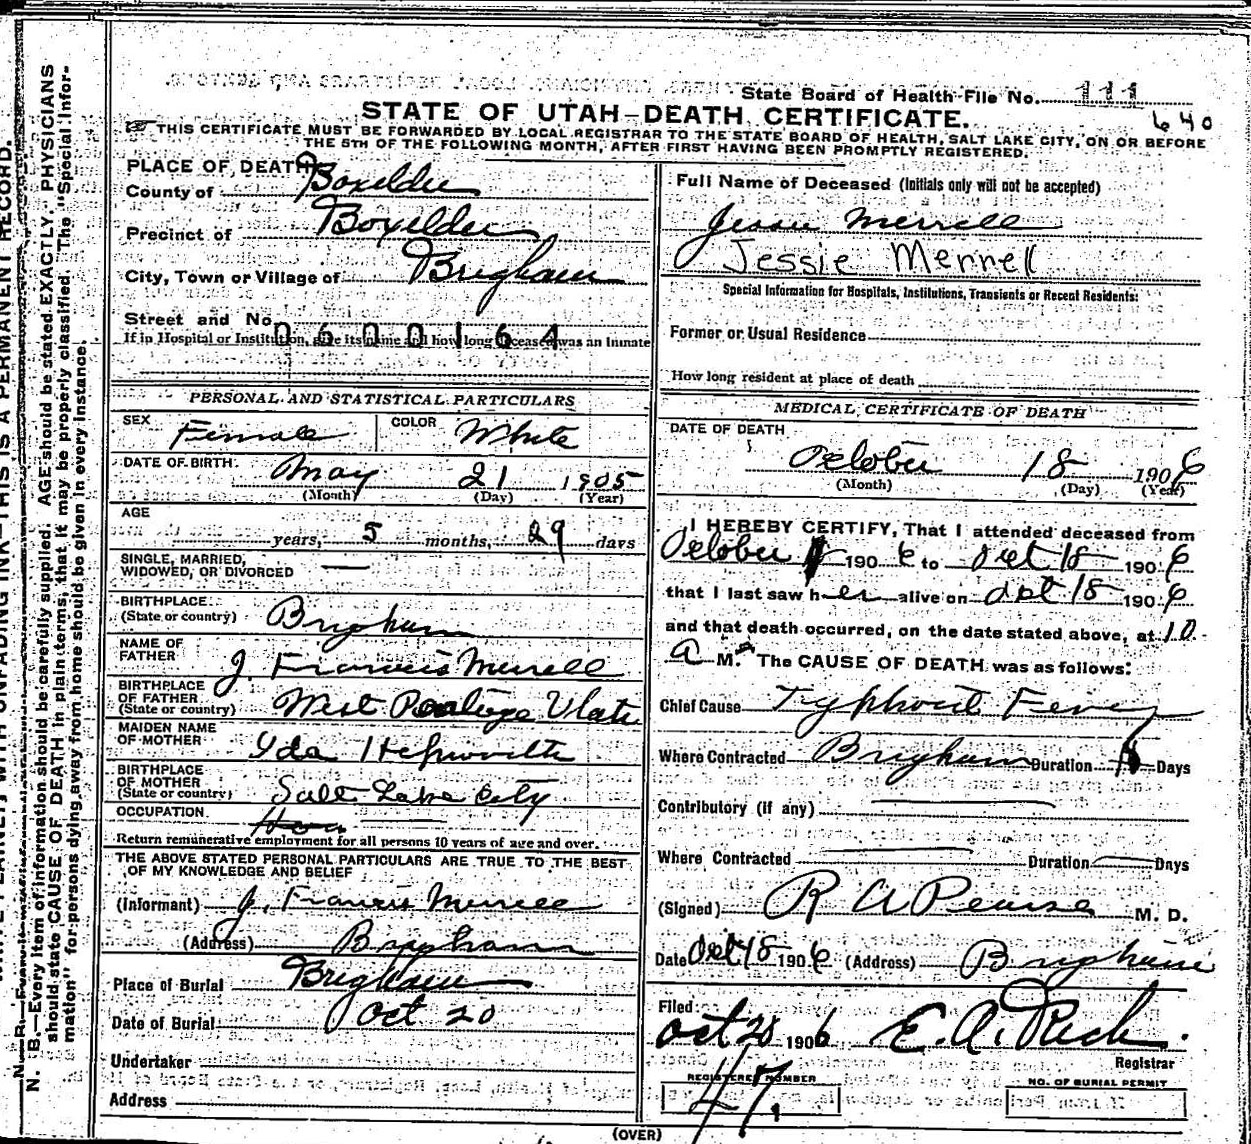 State Board of Health File No. 111
640
STATE OF UTAH—DEATH CERTIFICATE.
THIS CERTIFICATE MUST BE FORWARDED BY LOCAL REGISTRAR TO THE STATE BOARD OF HEALTH, SALT LAKE CITY, ON OR BEFORE
THE 5TH OF THE FOLLOWING MONTH, AFTER FIRST HAVING BEEN PROMPTLY REGISTERED.
PLACE OF DEATH
County of Boxelder
Precinct of Boxelder
City, Town or Village of Brigham
Street and No.
0600164
If in Hospital or Institution, give its name and how long deceased was an inmate
PERSONAL AND STATISTICAL PARTICULARS
SEX Female COLOR White
DATE OF BIRTH May 21 1905
(Month) (Day) (Year)
AGE
years, 5 months, 29 days
SINGLE, MARRIED,
WIDOWED, OR DIVORCED —
BIRTHPLACE
(State or country) Brigham
NAME OF
FATHER J. Francis Merrell
BIRTHPLACE
OF FATHER
(State or country) West Portage Utah
MAIDEN NAME
OF MOTHER Ida Hepworth
BIRTHPLACE
OF MOTHER
(State or country) Salt Lake City
OCCUPATION
Return remunerative employment for all persons 10 years of age and over.
THE ABOVE STATED PERSONAL PARTICULARS ARE TRUE TO THE BEST
OF MY KNOWLEDGE AND BELIEF
(Informant) J. Francis Merrell
(Address) Brigham
Place of Burial Brigham
Date of Burial Oct 20
Undertaker
Address
Full Name of Deceased (Initials only will not be accepted)
Jessie Merrell
Jessie Merrell
Special Information for Hospitals, Institutions, Transients or Recent Residents:
Former or Usual Residence
How long resident at place of death
MEDICAL CERTIFICATE OF DEATH
DATE OF DEATH
October 18 1906
(Month) (Day) (Year)
I HEREBY CERTIFY, That I attended deceased from
October 1906 to Oct 18 1906
that I last saw her alive on Oct 18 1906
and that death occurred, on the date stated above, at 10
A M. The CAUSE OF DEATH was as follows:
Chief Cause Typhoid Fever
Where Contracted Brigham Duration Days
Contributory (if any)
Where Contracted Duration Days
(Signed) R A Pearse M. D.
Date Oct 18 1906 (Address) Brigham
Filed
Oct 20 1906 E. A. Rich
Registrar
REGISTERED NUMBER
47
NO. OF BURIAL PERMIT
(OVER)
N. B.—Every item of information should be carefully supplied. AGE should be stated EXACTLY. PHYSICIANS
should state CAUSE OF DEATH in plain terms, that it may be properly classified. The "Special Infor-
mation" for persons dying away from home should be given in every instance.